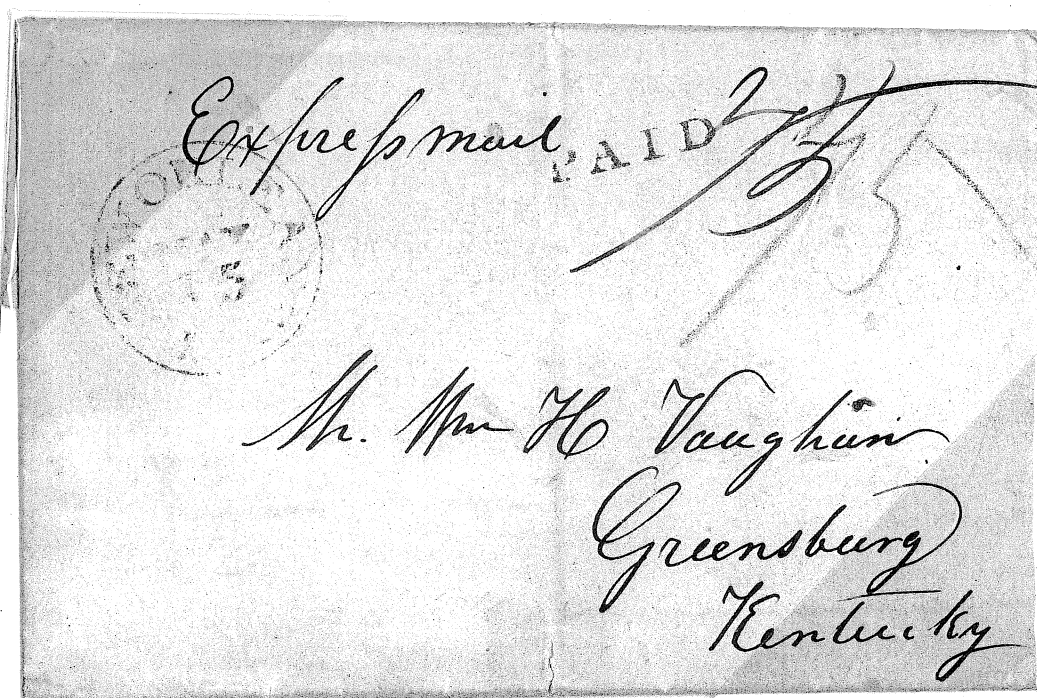 Express mail
PAID 75
75
5
Mr. Wm H Vaughan
Greensburg
Kentucky